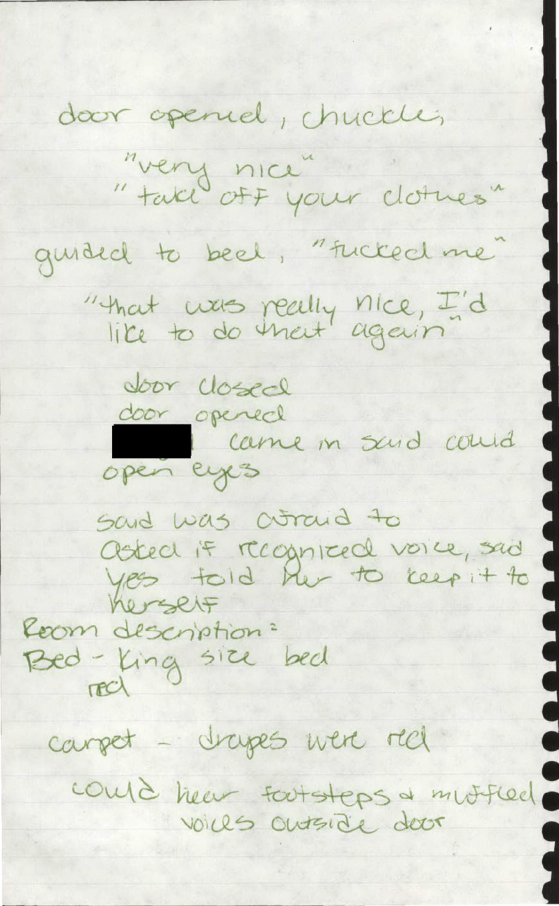 door opened, chuckle,
"very nice"
"take off your clothes"
guided to bed, "fucked me"
"that was really nice, I'd
like to do that again"
door closed
door opened
came in said could
open eyes
said was afraid to
asked if recognized voice, said
yes told her to keep it to
herself
Room description:
Bed - King size bed
red
carpet - drapes were red
could hear footsteps & muffled
voices outside door